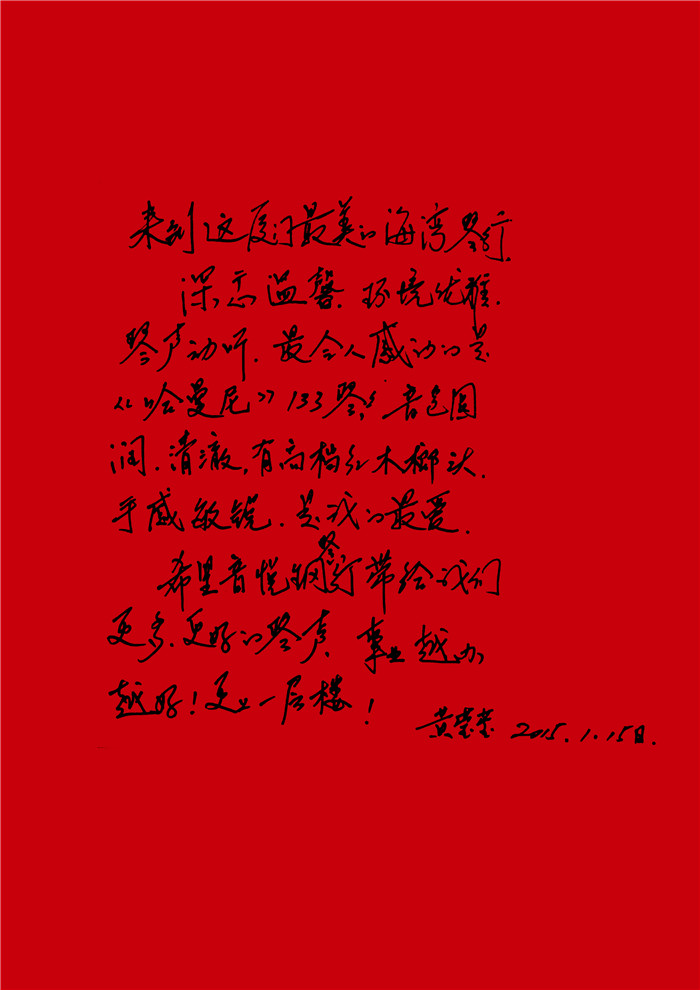 来到这厦门最美的海湾琴行.
深感温馨.环境优雅.
琴声动听.最令人感动的是
《哈曼尼》133琴,音色圆
润.清澈,有高档红木榔头.
手感敏锐.是我的最爱.
希望音悦钢琴行带给我们
更多.更好的琴声,事业越办
越好!更上一层楼!
黄莹莹 2015.1.15日.